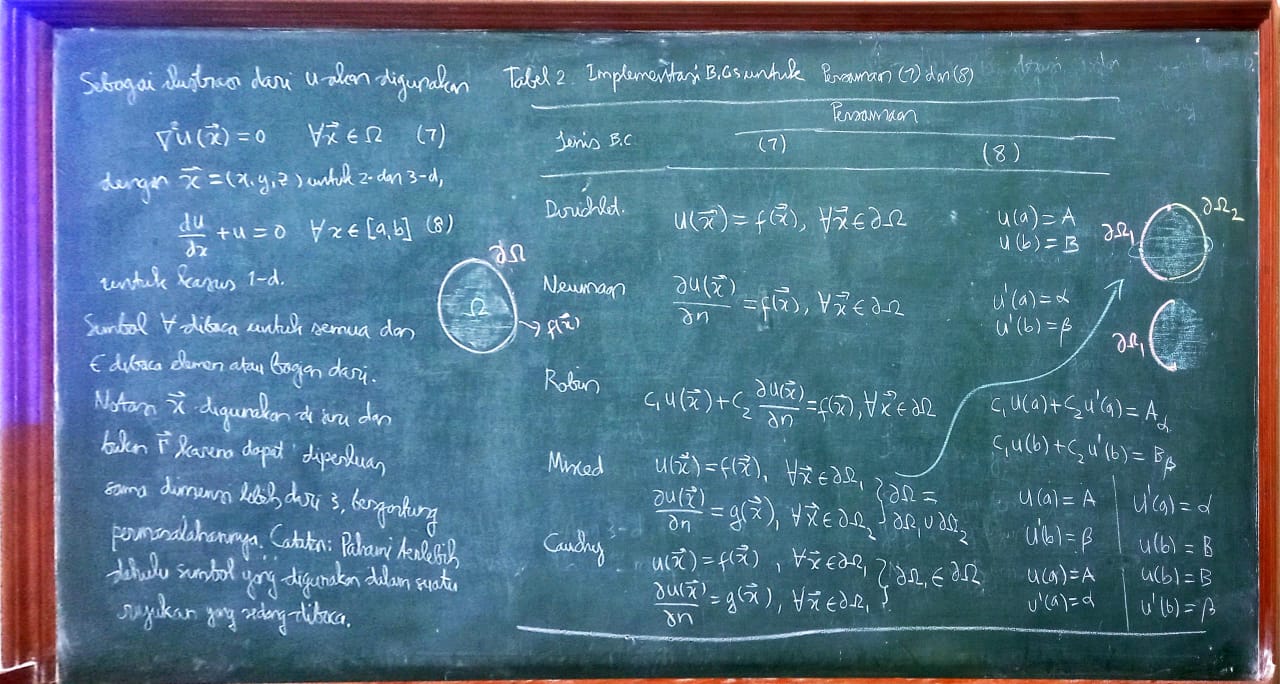 Sebagai ilustrasi dari u akan digunakan
∇²u(x⃗) = 0 ∀x⃗ ∈ Ω (7)
dengan x⃗ = (x, y, z) untuk 2- dan 3-d,
du/dx + u = 0 ∀x ∈ [a,b] (8)
untuk kasus 1-d.
Simbol ∀ dibaca untuk semua dan
∈ dibaca elemen atau bagian dari.
Notasi x⃗ digunakan di sini dan
bukan r⃗ karena dapat diperluas
sama dimensi lebih dari 3, bergantung
permasalahannya. Catatan: Pahami terlebih
dahulu simbol yang digunakan dalam suatu
rujukan yang sedang dibaca.
∂Ω
Ω
→ f(x⃗)
Tabel 2. Implementasi B.Cs untuk Persamaan (7) dan (8)
Persamaan
Jenis B.C (7) (8)
Dirichlet. u(x⃗) = f(x⃗), ∀x⃗ ∈ ∂Ω u(a) = A
u(b) = B
Neumann ∂u(x⃗)/∂n = f(x⃗), ∀x⃗ ∈ ∂Ω u'(a) = α
u'(b) = β
Robin c₁u(x⃗) + c₂ ∂u(x⃗)/∂n = f(x⃗), ∀x⃗ ∈ ∂Ω c₁u(a) + c₂u'(a) = A_α
c₁u(b) + c₂u'(b) = B_β
Mixed u(x⃗) = f(x⃗), ∀x⃗ ∈ ∂Ω₁ } ∂Ω = u(a) = A | u'(a) = α
∂u(x⃗)/∂n = g(x⃗), ∀x⃗ ∈ ∂Ω₂ } ∂Ω₁ ∪ ∂Ω₂ u'(b) = β | u(b) = B
Cauchy u(x⃗) = f(x⃗), ∀x⃗ ∈ ∂Ω₁ } ∂Ω₁ ∈ ∂Ω u(a) = A | u(b) = B
∂u(x⃗)/∂n = g(x⃗), ∀x⃗ ∈ ∂Ω₁ } u'(a) = α | u'(b) = β
∂Ω₁ ∂Ω₂
∂Ω₁